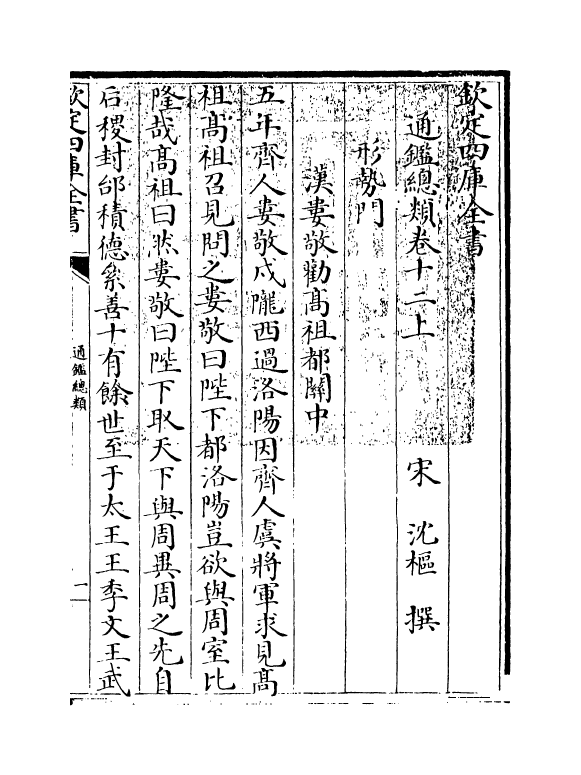 欽定四庫全書
通鑑總類卷十二上
宋 沈樞 撰
形勢門
漢婁敬勸髙祖都關中
五年齊人婁敬戍隴西過洛陽因齊人虞將軍求見髙
祖髙祖召見問之婁敬曰陛下都洛陽豈欲與周室比
隆哉髙祖曰然婁敬曰陛下取天下與周異周之先自
后稷封邰積德絫善十有餘世至于太王王季文王武
欽定四庫全書
通鑑總類
一